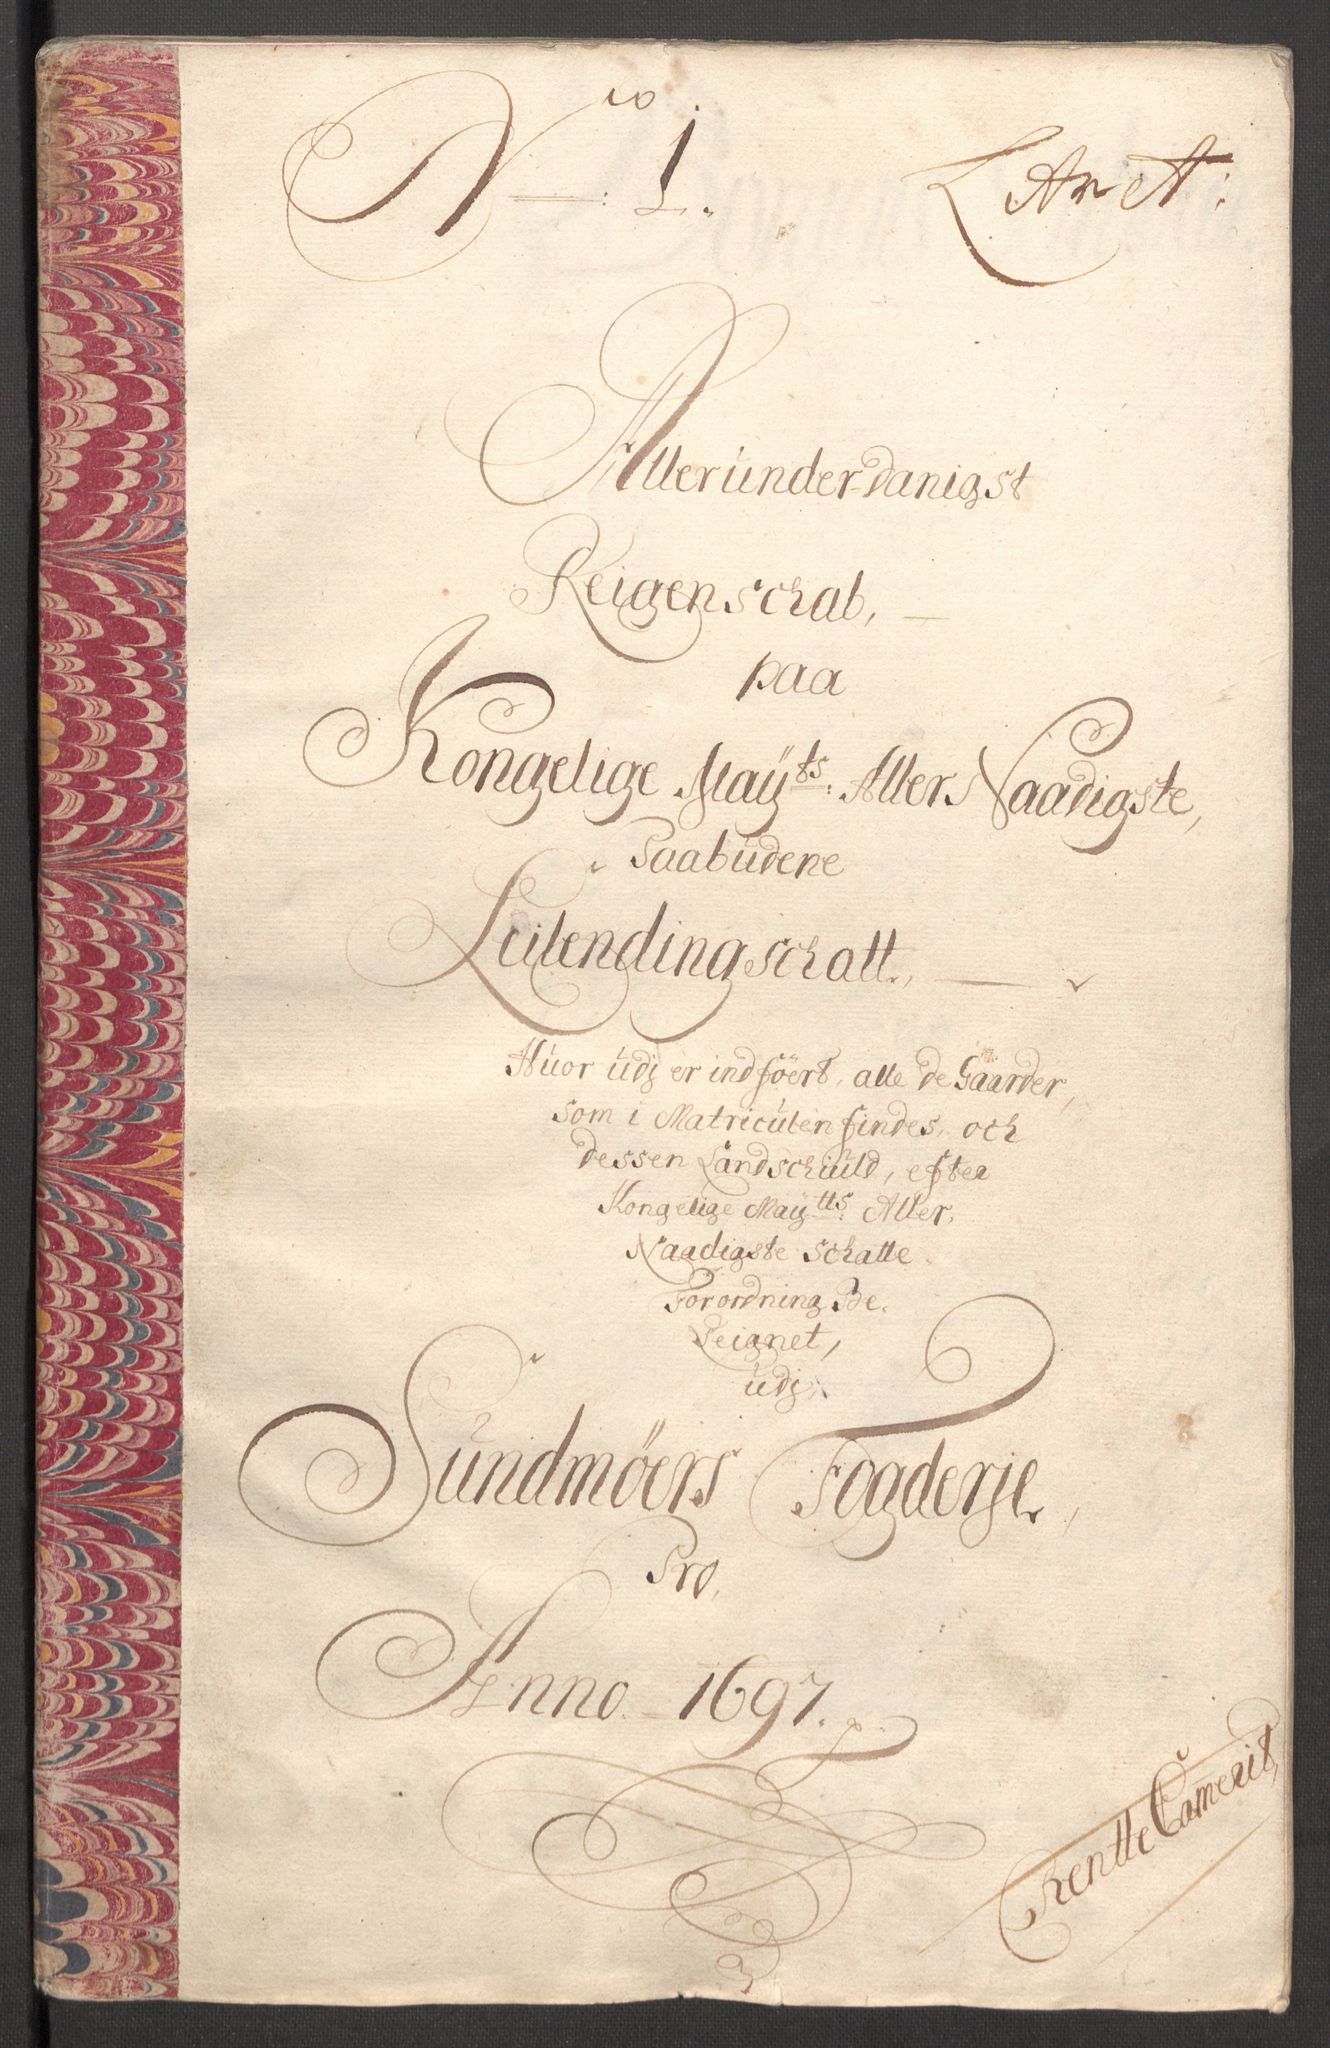 N<sup>ro</sup>: 1.
Litr A:
Allerunderdanigst
Reigenschab,
paa
Kongelige May<sup>ts</sup>: Aller Naadigste,
Paabudene
Leilendingschatt,
Huor udj er indföert, alle de Gaarder,
som i Matriculen findes, och
dessen Landschuld, efter
Kongelige May<sup>tts</sup>: Aller,
Naadigste Schatte
Forordning Be,
Reignet,
udj
Sundmöers Fogderje,
Pro,
Anno 1697.
Rentte Camerit,